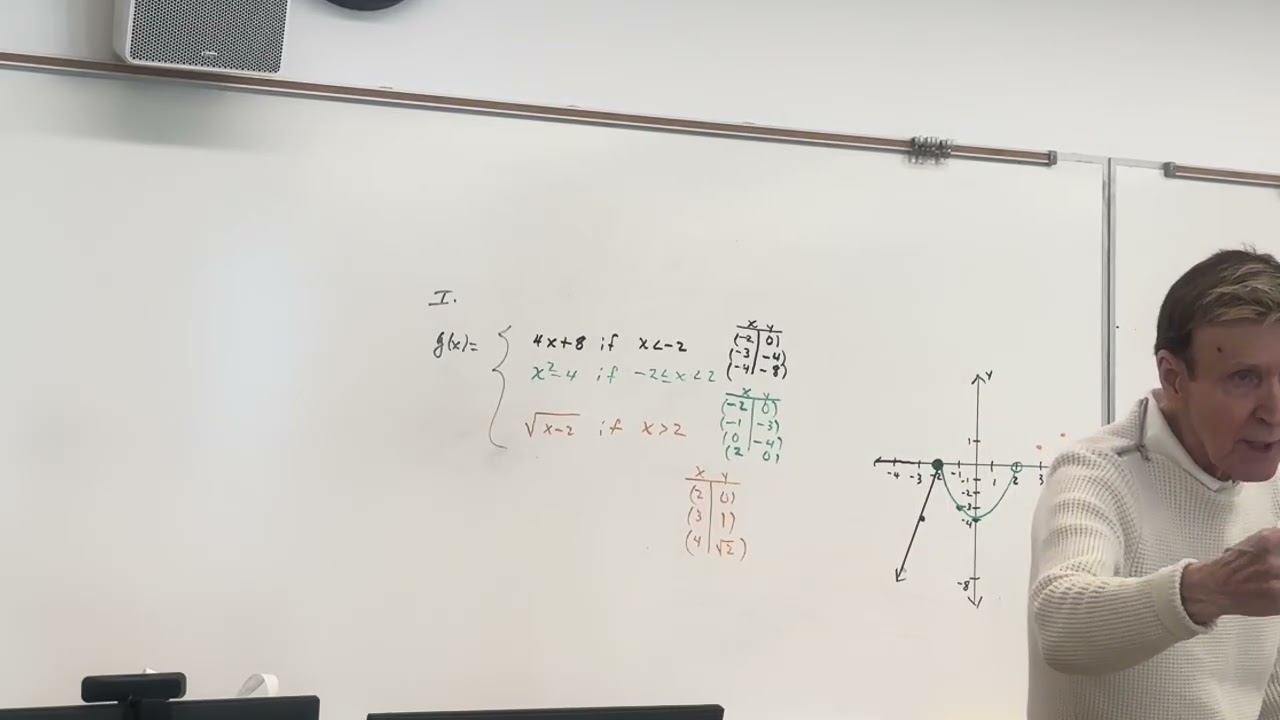 I.
g(x)= { 4x+8 if x<-2
x²-4 if -2≤x<2
√x-2 if x>2
x y
(-2 0)
(-3 -4)
(-4 -8)
x y
(-2 0)
(-1 -3)
(0 -4)
(2 0)
x y
(2 0)
(3 1)
(4 √2)
y
1
-4 -3 -2 -1 1 2 3
-1
-2
-3
-4
-8